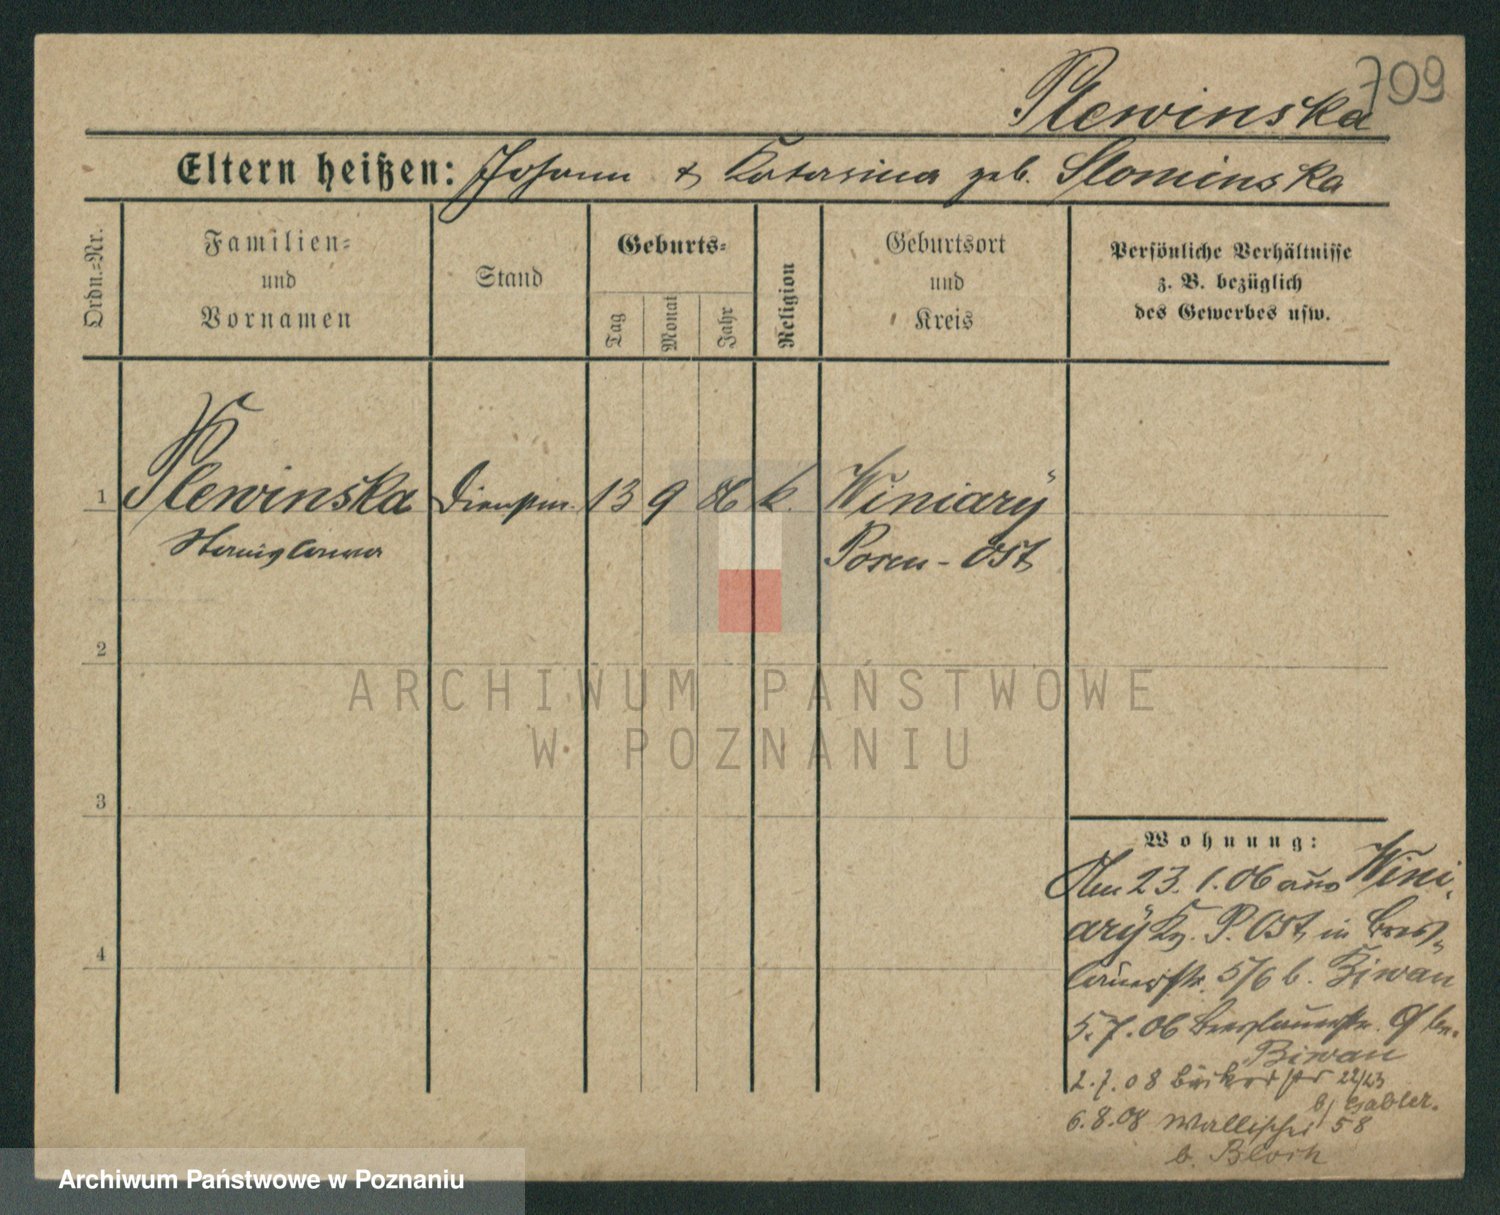 709
Plewinska
Eltern heißen: Johann & Katarina geb. Slominska
Ordn.=Nr.
Familien=
und
Vornamen
Stand
Geburts=
Tag
Monat
Jahr
Religion
Geburtsort
und
Kreis
Persönliche Verhältnisse
z. B. bezüglich
des Gewerbes usw.
1 Plewinska 13 9 86 k. Winiary
Posen-Ost
2
3
4
ARCHIWUM PAŃSTWOWE
W POZNANIU
Wohnung:
Den 23. 1. 06 aus Wini-
ary Kr. P. Ost, in Bres-
lauerstr. 5/6 b.
5. 7. 06 Breslauerstr. 9
2. 7. 08 Bäckerstr 22/23
b/ Gabler.
6. 8. 08 Wallischei 58
b. Bloch
Archiwum Państwowe w Poznaniu